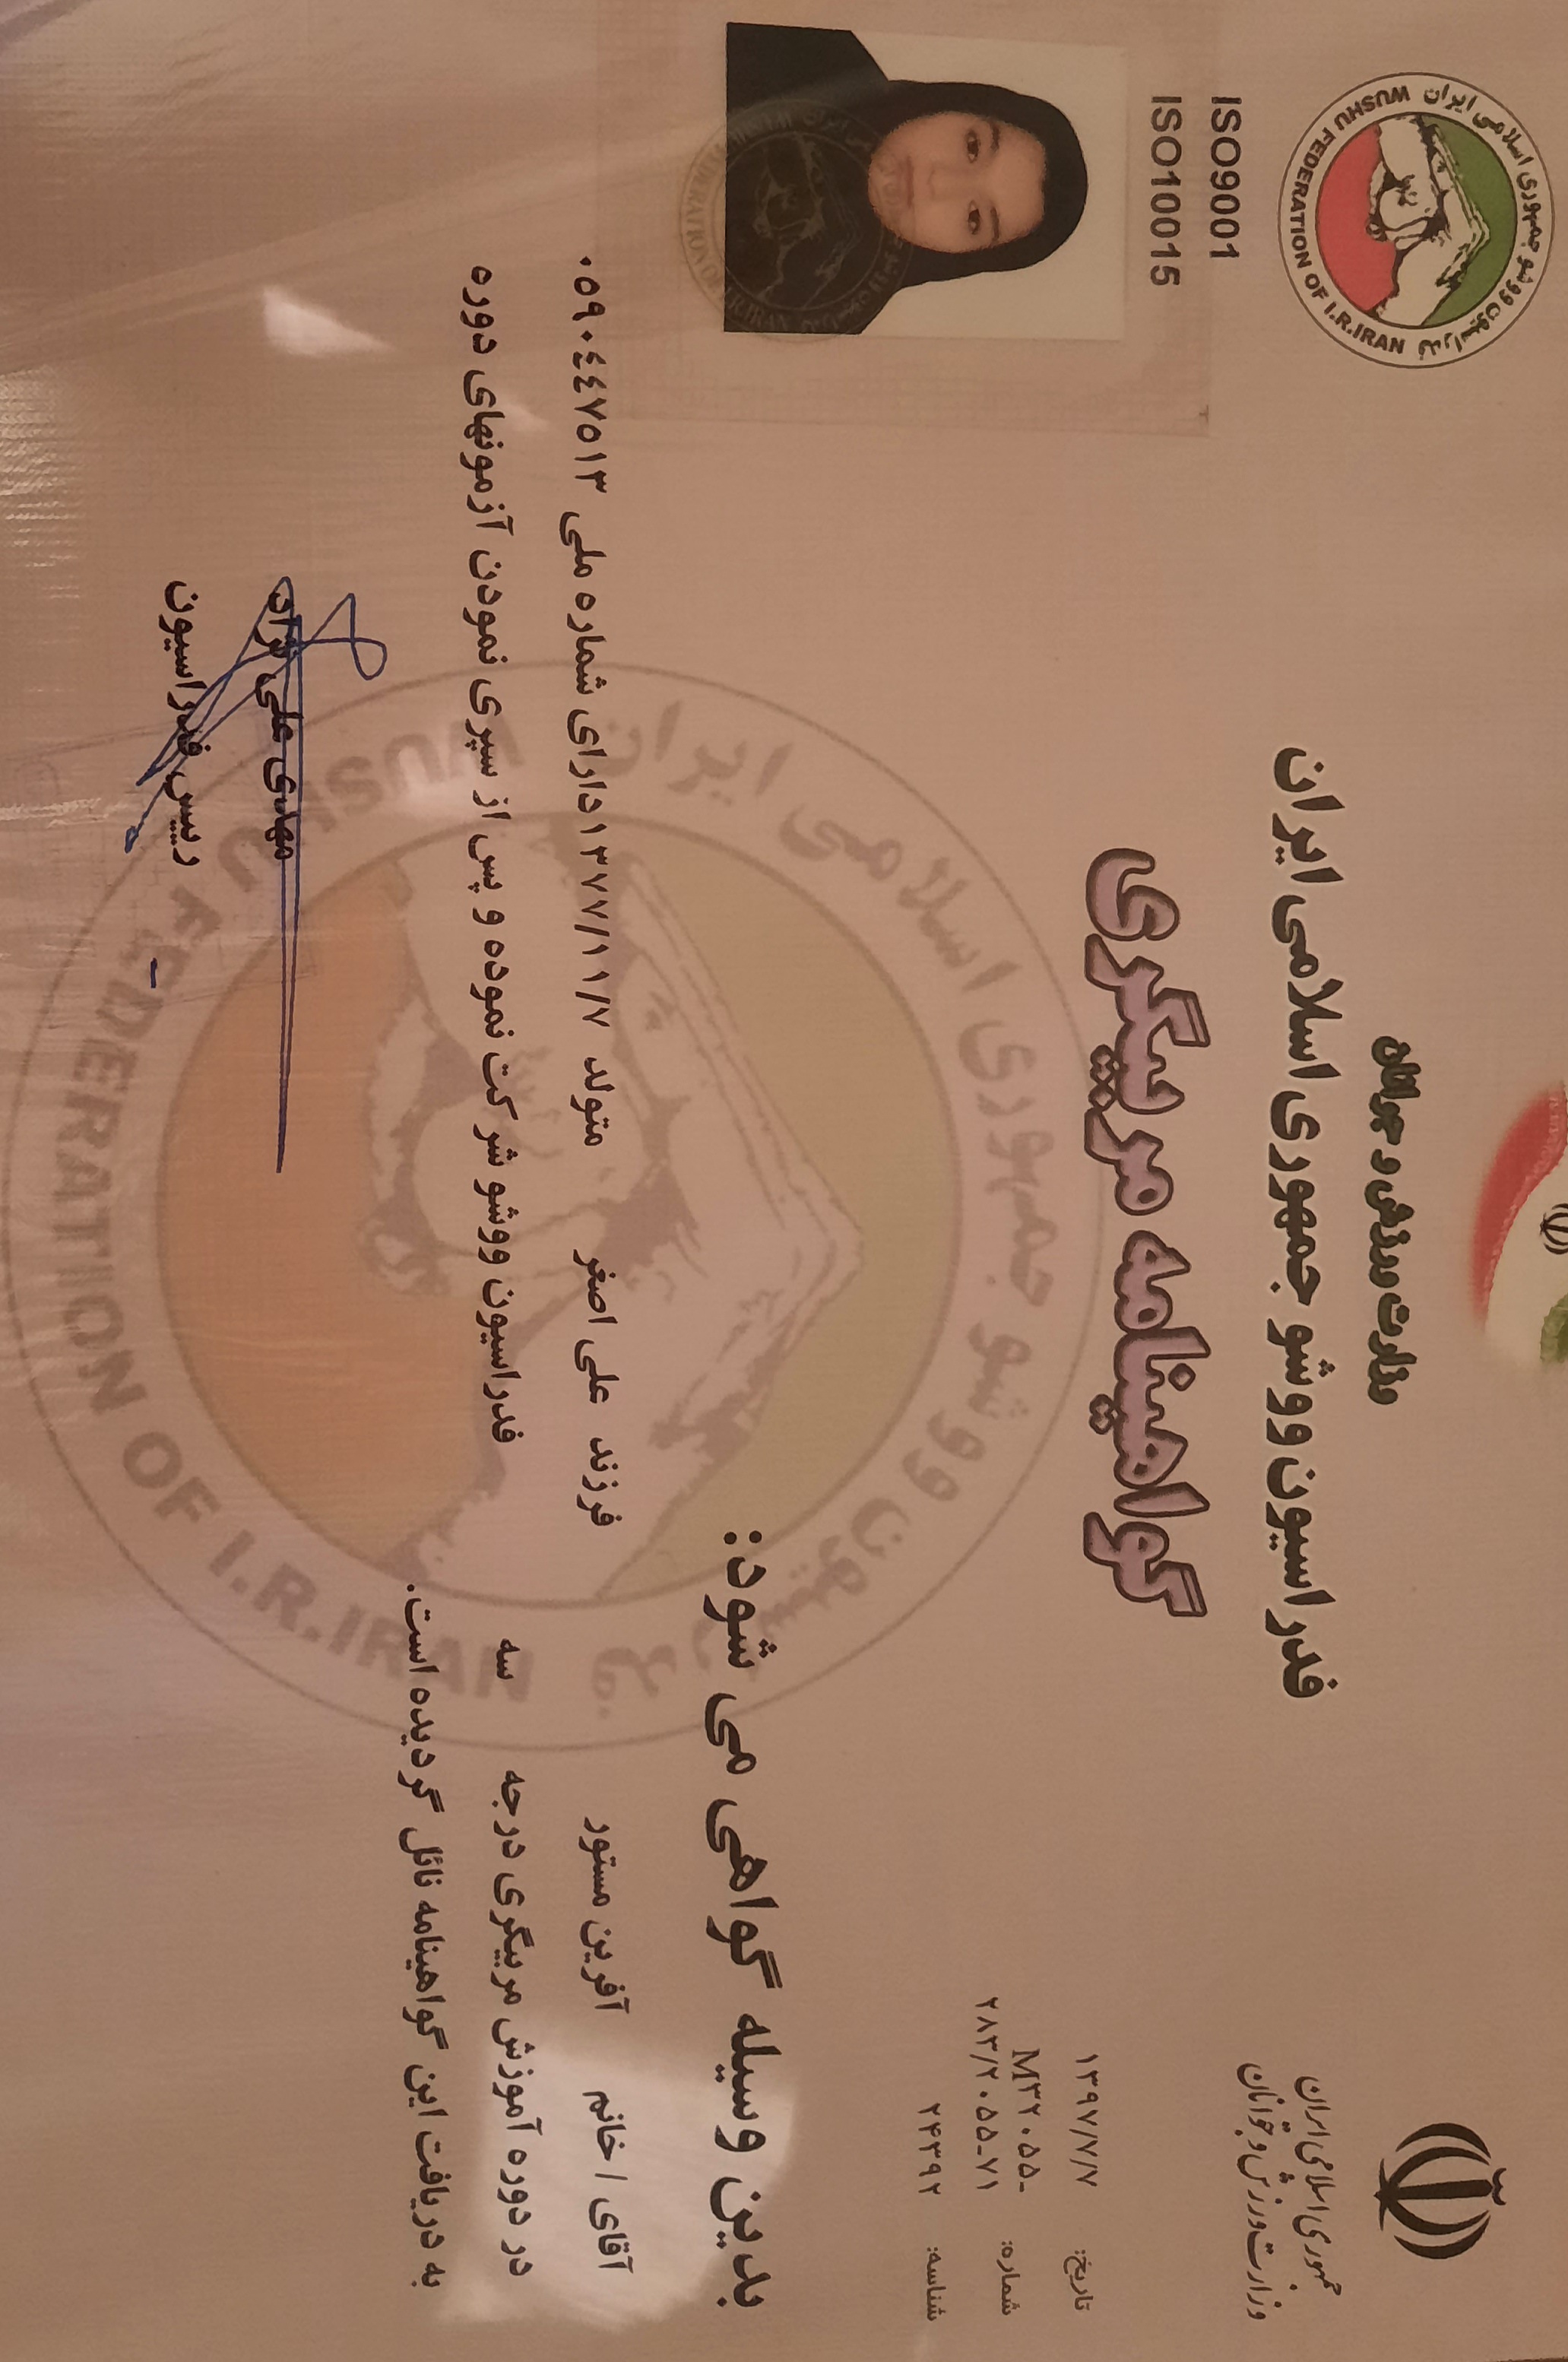 جمهوری اسلامی ایران
وزارت ورزش و جوانان
وزارت ورزش و جوانان
فدراسیون ووشو جمهوری اسلامی ایران
گواهینامه مربیگری
فدراسیون ووشو جمهوری اسلامی ایران
WUSHU FEDERATION OF I.R.IRAN
ISO9001
ISO10015
تاریخ: ۱۳۹۷/۷/۷
شماره: M۳۲۰۵۵-
۲۸۳/۲۰۵۵-۷۱
شناسه: ۲۴۳۹۲
بدین وسیله گواهی می شود:
آقای / خانم آفرین مستور فرزند علی اصغر متولد ۱۳۷۷/۱۱/۷ دارای شماره ملی ۰۵۹۰۴۴۷۵۱۳
در دوره آموزش مربیگری درجه سه فدراسیون ووشو شرکت نموده و پس از سپری نمودن آزمونهای دوره
به دریافت این گواهینامه نائل گردیده است.
مهدی علی نژاد
رییس فدراسیون
فدراسیون ووشو جمهوری اسلامی ایران
WUSHU FEDERATION OF I.R.IRAN